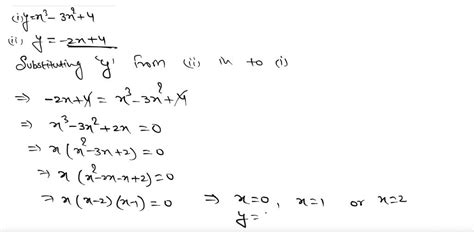 (i) y = x³ - 3x² + 4
(ii) y = -2x + 4
Substituting 'y' from (ii) in to (i)
⇒ -2x + 4 = x³ - 3x² + 4
⇒ x³ - 3x² + 2x = 0
⇒ x (x² - 3x + 2) = 0
⇒ x (x² - 2x - x + 2) = 0
⇒ x (x - 2) (x - 1) = 0 ⇒ x = 0, x = 1 or x = 2
y =